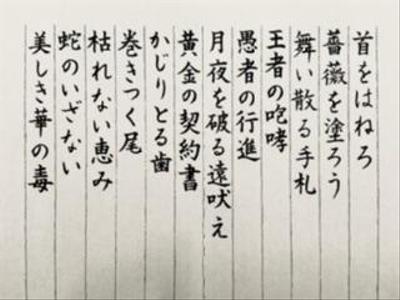 首をはねろ
薔薇を塗ろう
舞い散る手札
王者の咆哮
愚者の行進
月夜を破る遠吠え
黄金の契約書
かじりとる歯
巻きつく尾
枯れない恵み
蛇のいざない
美しき華の毒